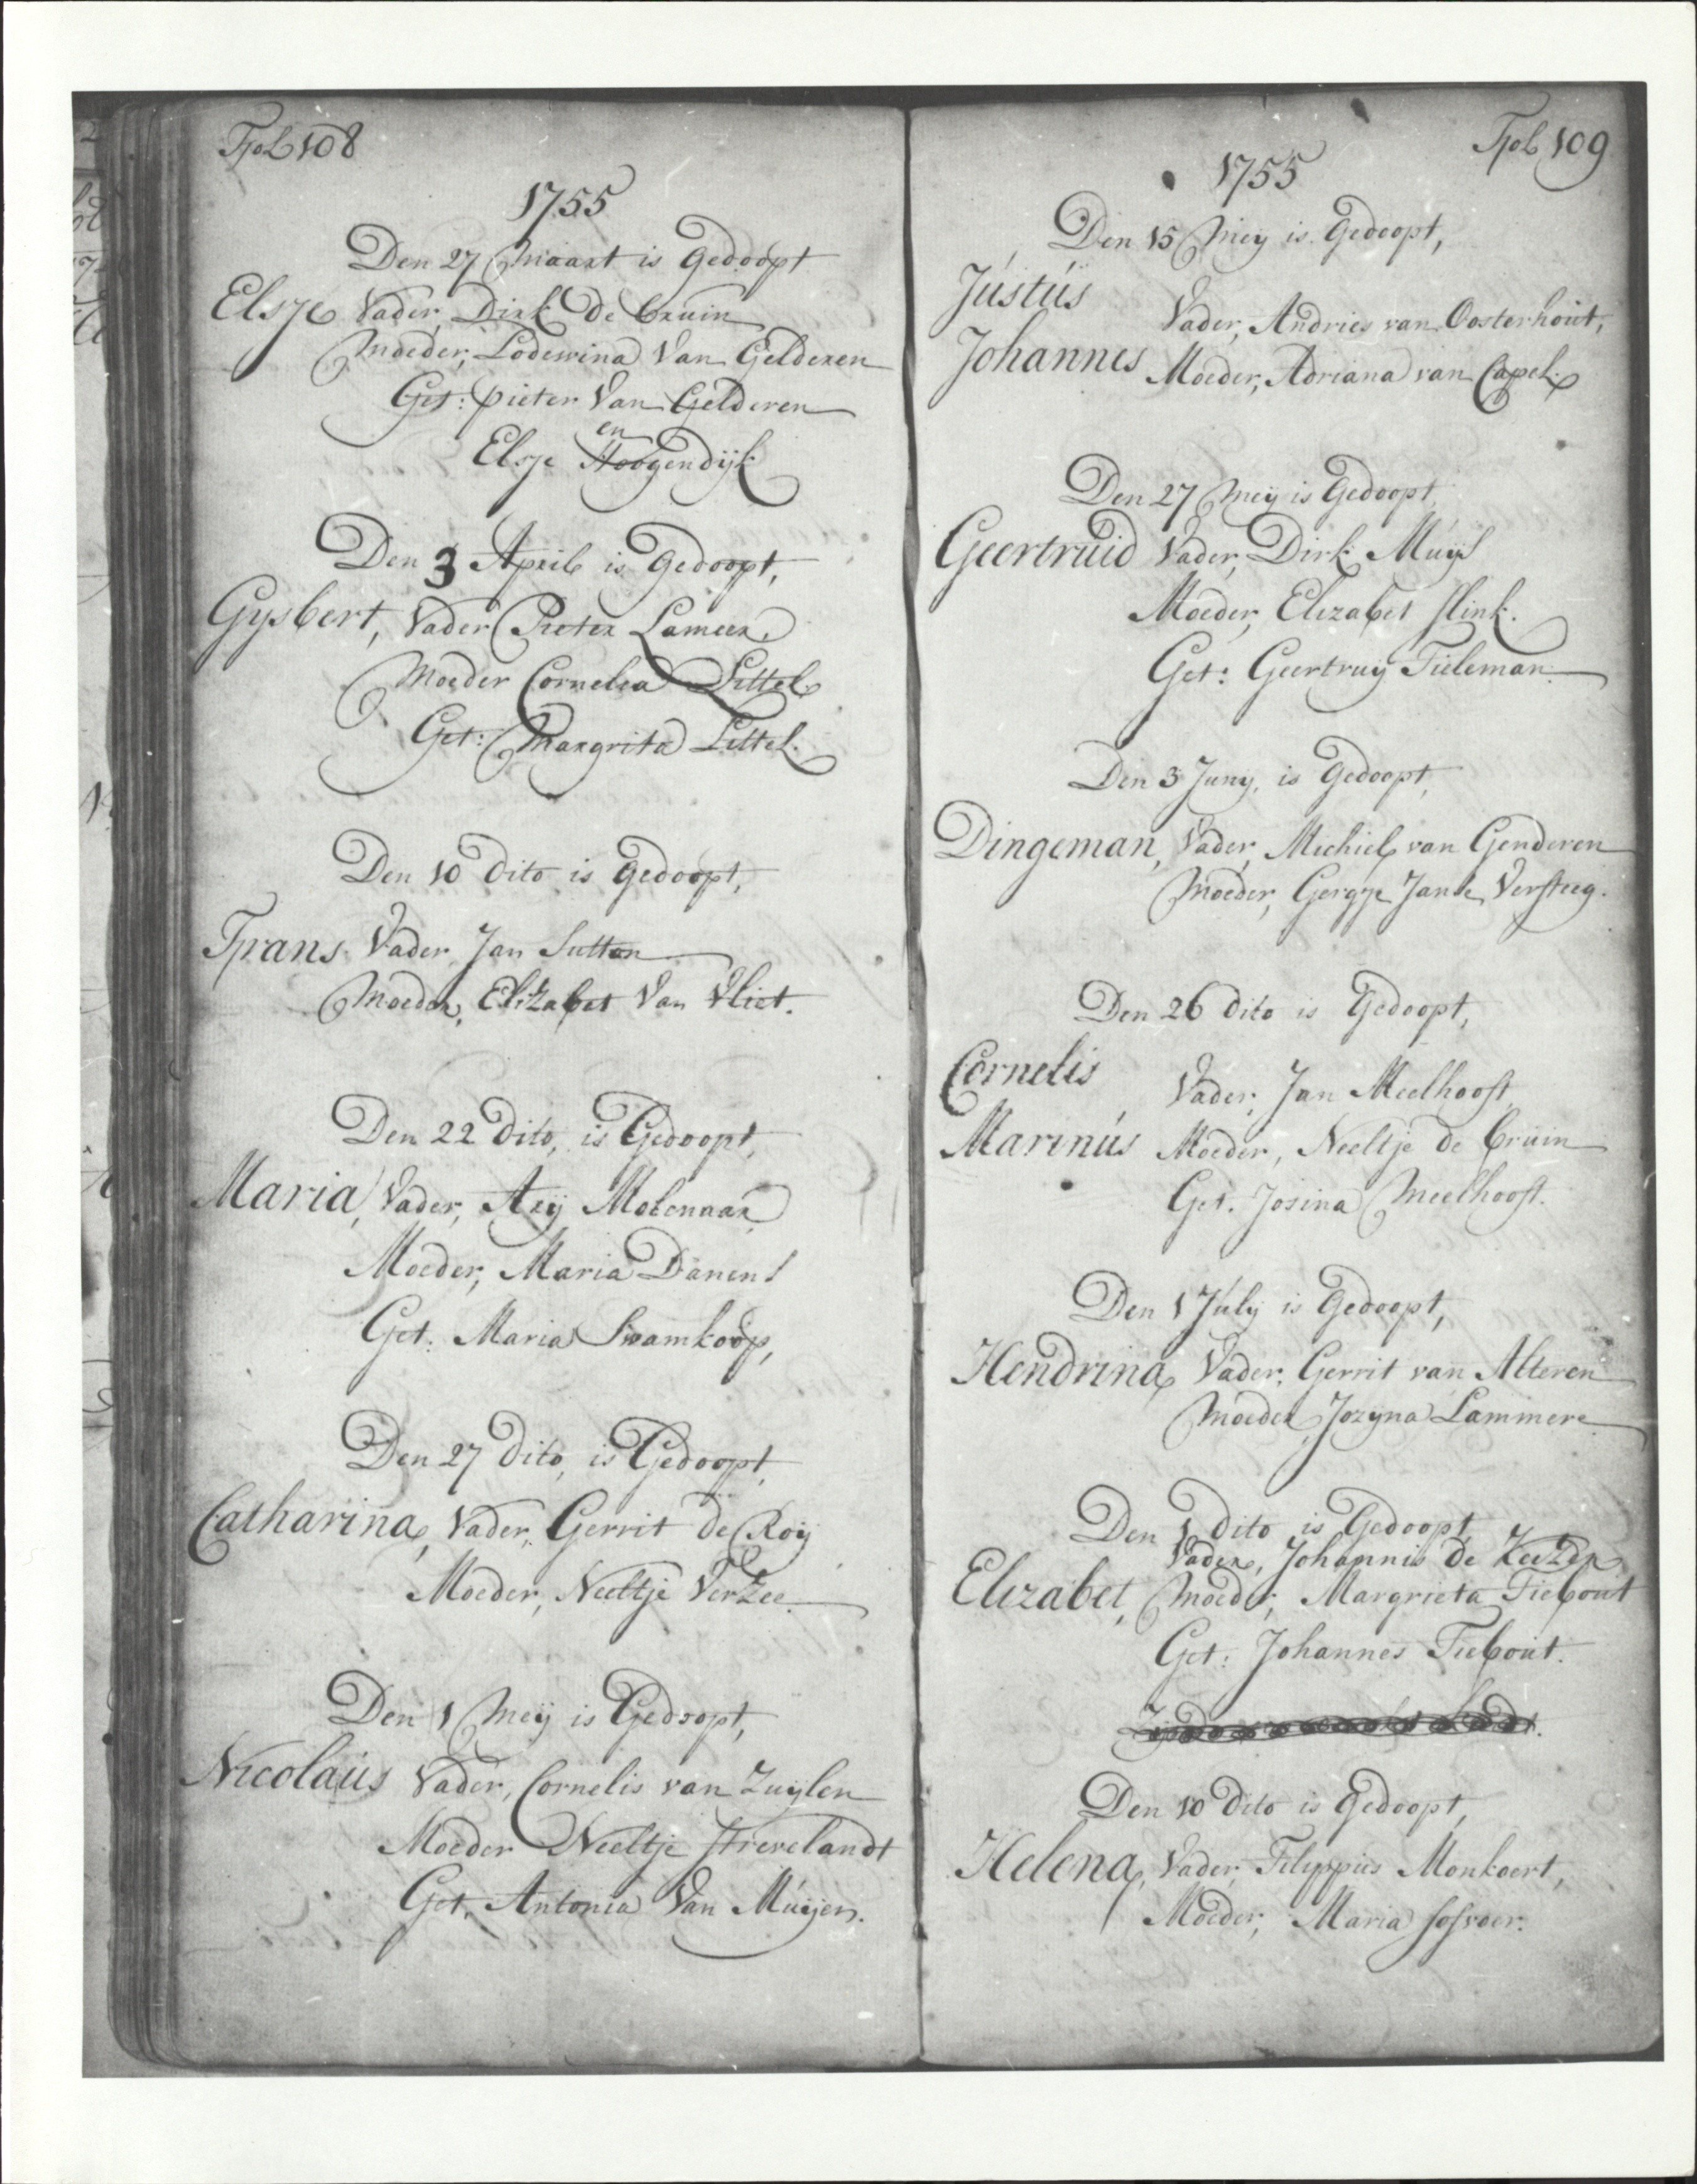 Fol 108
1755
Den 27 Maart is Gedoopt
Elsje Vader, Dirk De Cruin
Moeder, Lodewina Van Gelderen
Get: Pieter Van Gelderen
en
Elsje Hoogendijk
Den 3 April is Gedoopt,
Gysbert, Vader Pieter Lameer
Moeder Cornelia Littel
Get: Margrita Littel.
Den 10 Dito is Gedoopt,
Frans Vader, Jan Sutton
Moeder, Elizabet Van Vliet.
Den 22 Dito, is Gedoopt,
Maria, Vader, Ary Molenaar
Moeder, Maria Danens
Get: Maria Swamkoop,
Den 27 Dito, is Gedoopt,
Catharina, Vader, Gerrit de Roij
Moeder, Neeltje Verzee.
Den 1 Meij is Gedoopt,
Nicolaus Vader, Cornelis van Zuylen
Moeder Neeltje Strevelandt
Get, Antonia Van Muijen.
Fol 109
1755
Den 15 Meij is Gedoopt,
Justus
Vader, Andries van Oosterhout,
Johannes Moeder, Adriana van Capel.
Den 27 Meij is Gedoopt,
Geertruid Vader, Dirk Muijs
Moeder, Elizabet Slink.
Get: Geertruy Tieleman.
Den 3 Juny, is Gedoopt,
Dingeman, Vader, Mechiel van Genderen
Moeder, Versteeg.
Den 26 Dito is Gedoopt,
Cornelis
Vader, Jan Meelhooft,
Marinus Moeder, Neeltje de Cruin
Get. Josina Meelhooft.
Den 1 July is Gedoopt,
Hendrina, Vader, Gerrit van Alteren
Moeder, Jozyna Lammere
Den 1 Dito is Gedoopt,
Vader, Johannis de Keizer
Elizabet, Moeder, Margrieta Tiebout
Get: Johannes Tiebout.
Den 10 Dito is Gedoopt,
Helena, Vader, Filippus Monkoert,
Moeder, Maria